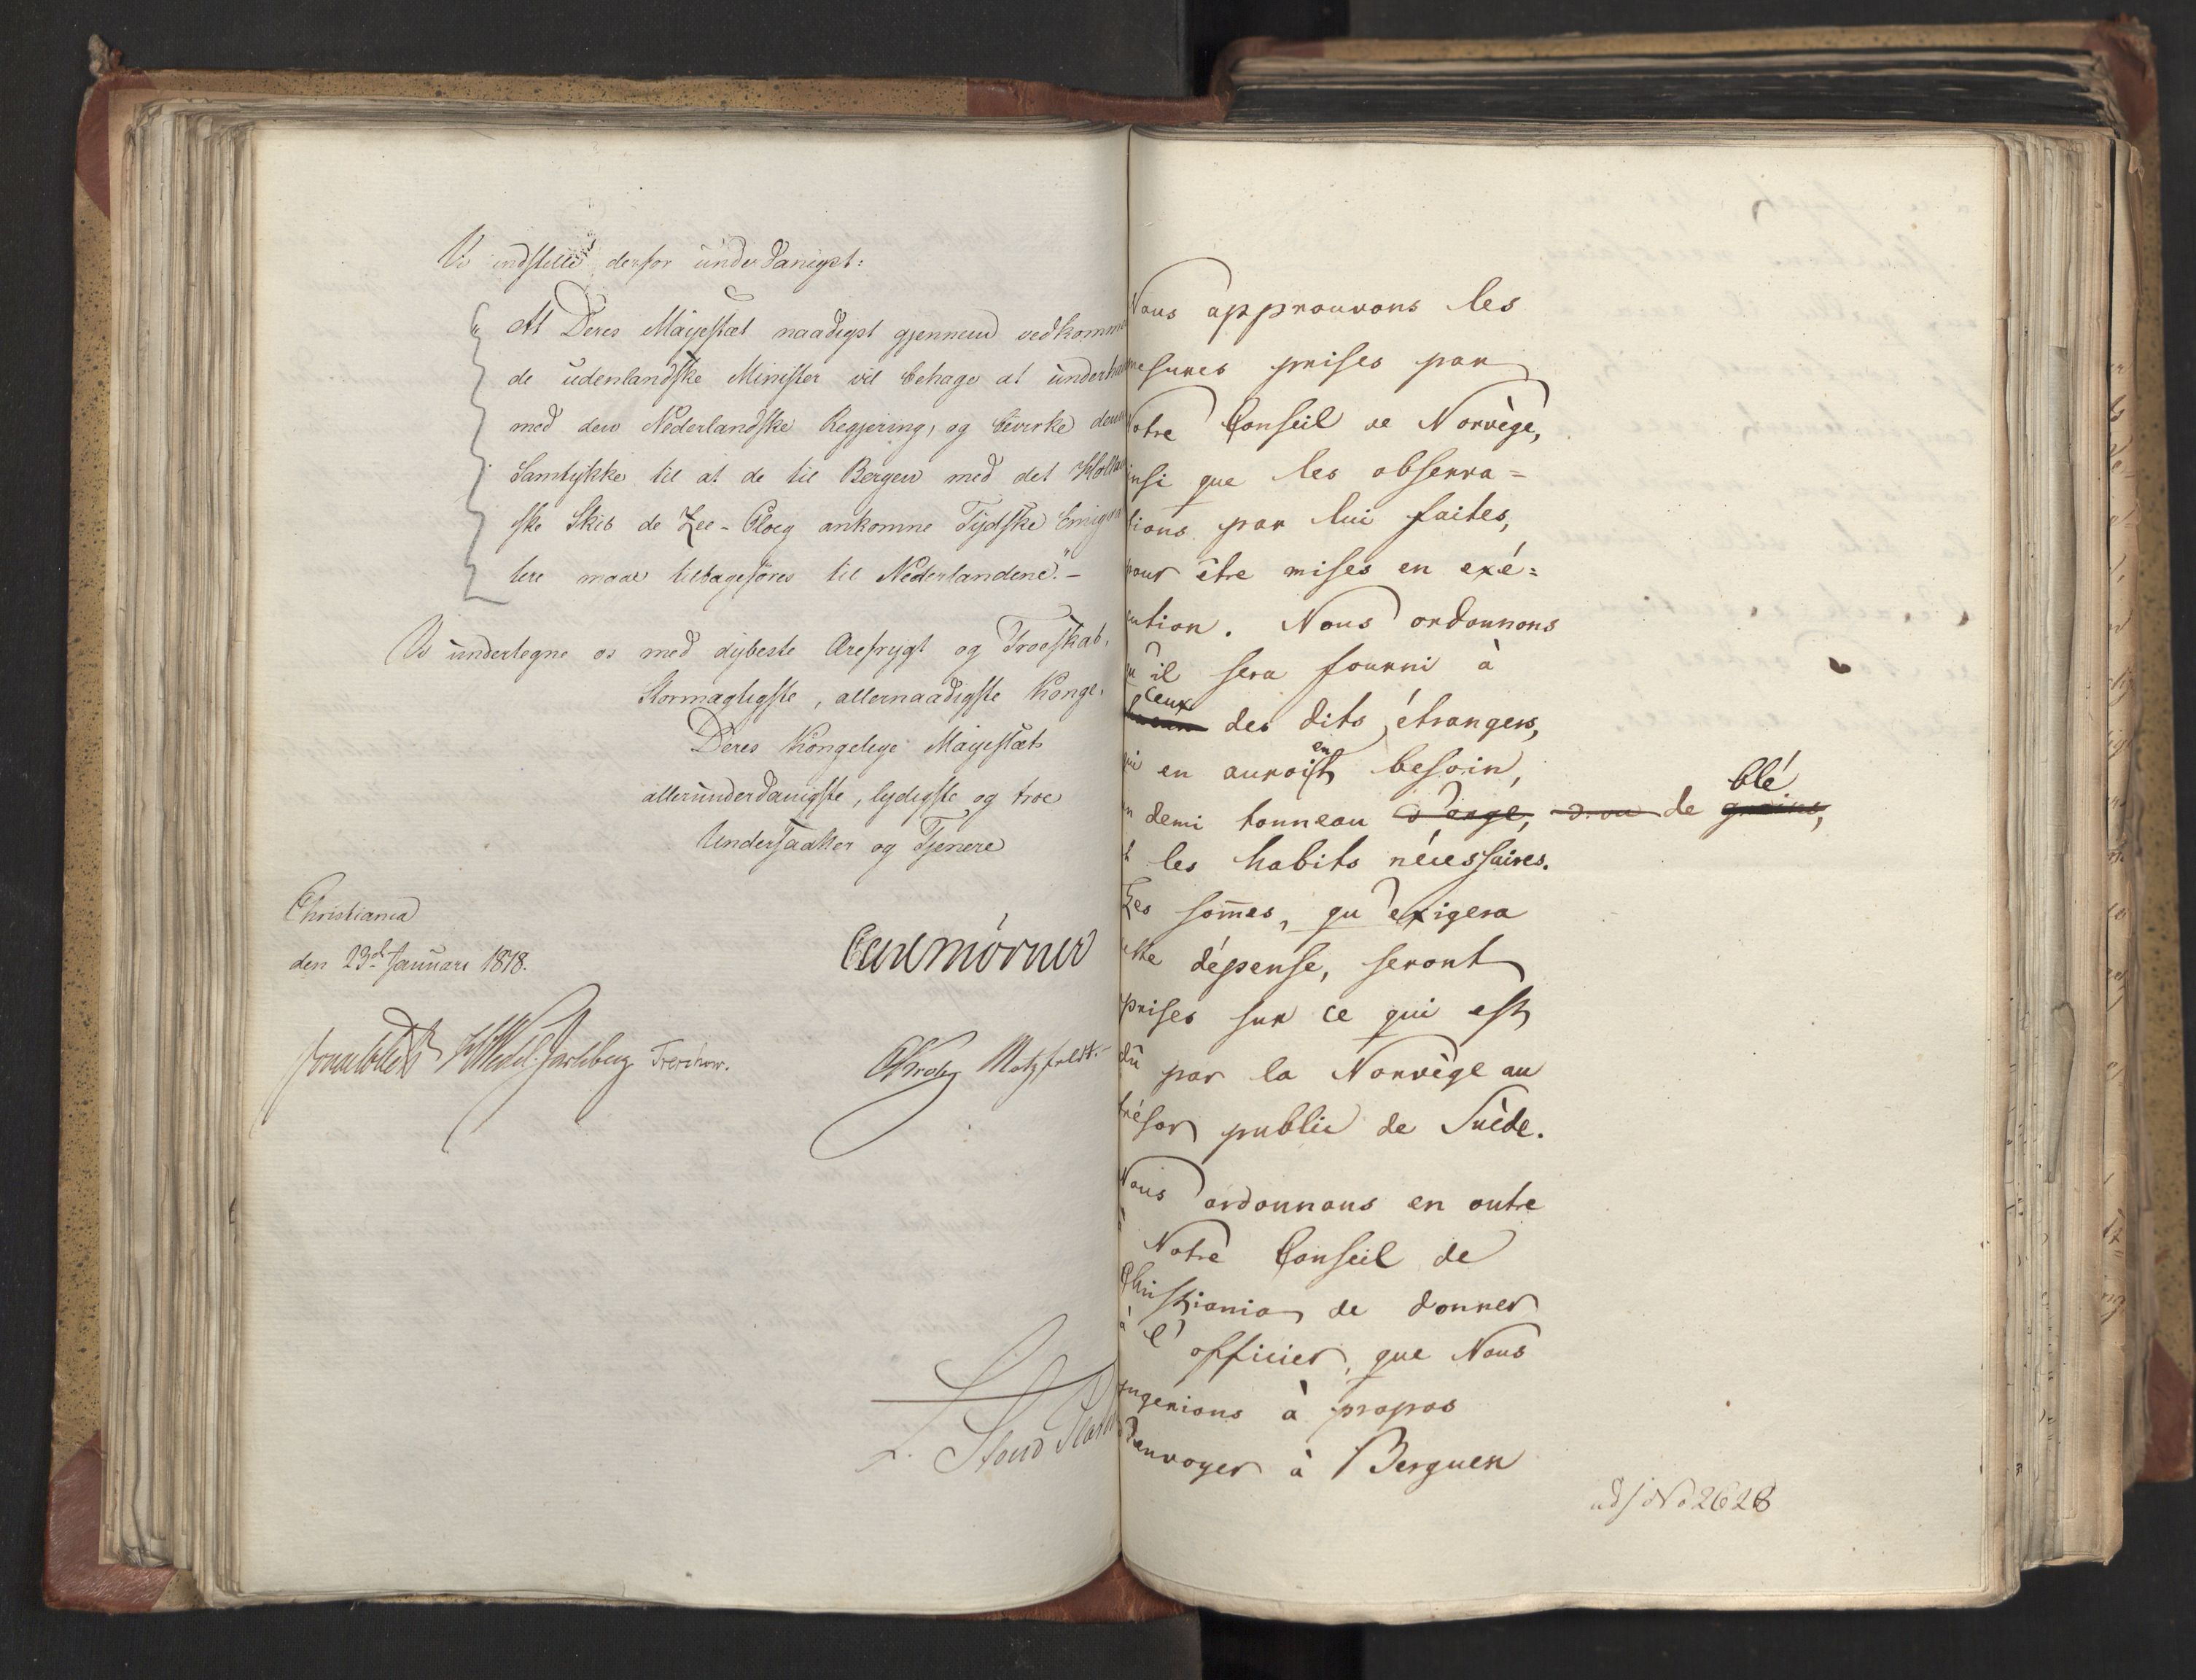 Vi indstille derfor underdanigst:
"At Deres Mayestæt naadigst gjennem vedkomme
de udenlandske Minister vil behage at underha
med den Nederlandske Regjering, og bevirke denn
Samtykke til at de til Bergen med det Hollan
ske Skib de Zee-Ploeg ankomne Tydske Emigra
tere maae tilbageføres til Nederlandene." -
Vi undertegne os med dybeste Ærefrygt og Troeskab,
Stormægtigste, allernaadigste Konge,
Deres Kongelige Mayestæts
allerunderdanigste, lydigste og troe
Undersaatter og Tjenere
Christiania
den 23de Januari 1818.
Carl Mörner
Sommerhielm HWedel-Jarlsberg Treschow.
CKrohg Motzfeldt.
L. Stoud Plato
Nous approuvons les
mesures prises par
Notre Conseil de Norvège,
insi que les observa=
tions par lui faites,
pour être mises en exé=
ution. Nous ordonnons
u'il sera fourni à
ceux
des dits étrangers,
en
ui en auroist besoin,
blé
n demi tonneau d'orge, d'ou de grains,
t les habits nécessaires.
Les som̄es, qu'exigera
ette dépense, seront
prises sur ce qui est
dû par la Norvège au
trésor public de Suède.
Nous ordonnons en outre
à Notre Conseil de
Christiania de donner
à l'officier, que Nous
jugerions à propos
d'envoyer à Berguen
ad j No 2628